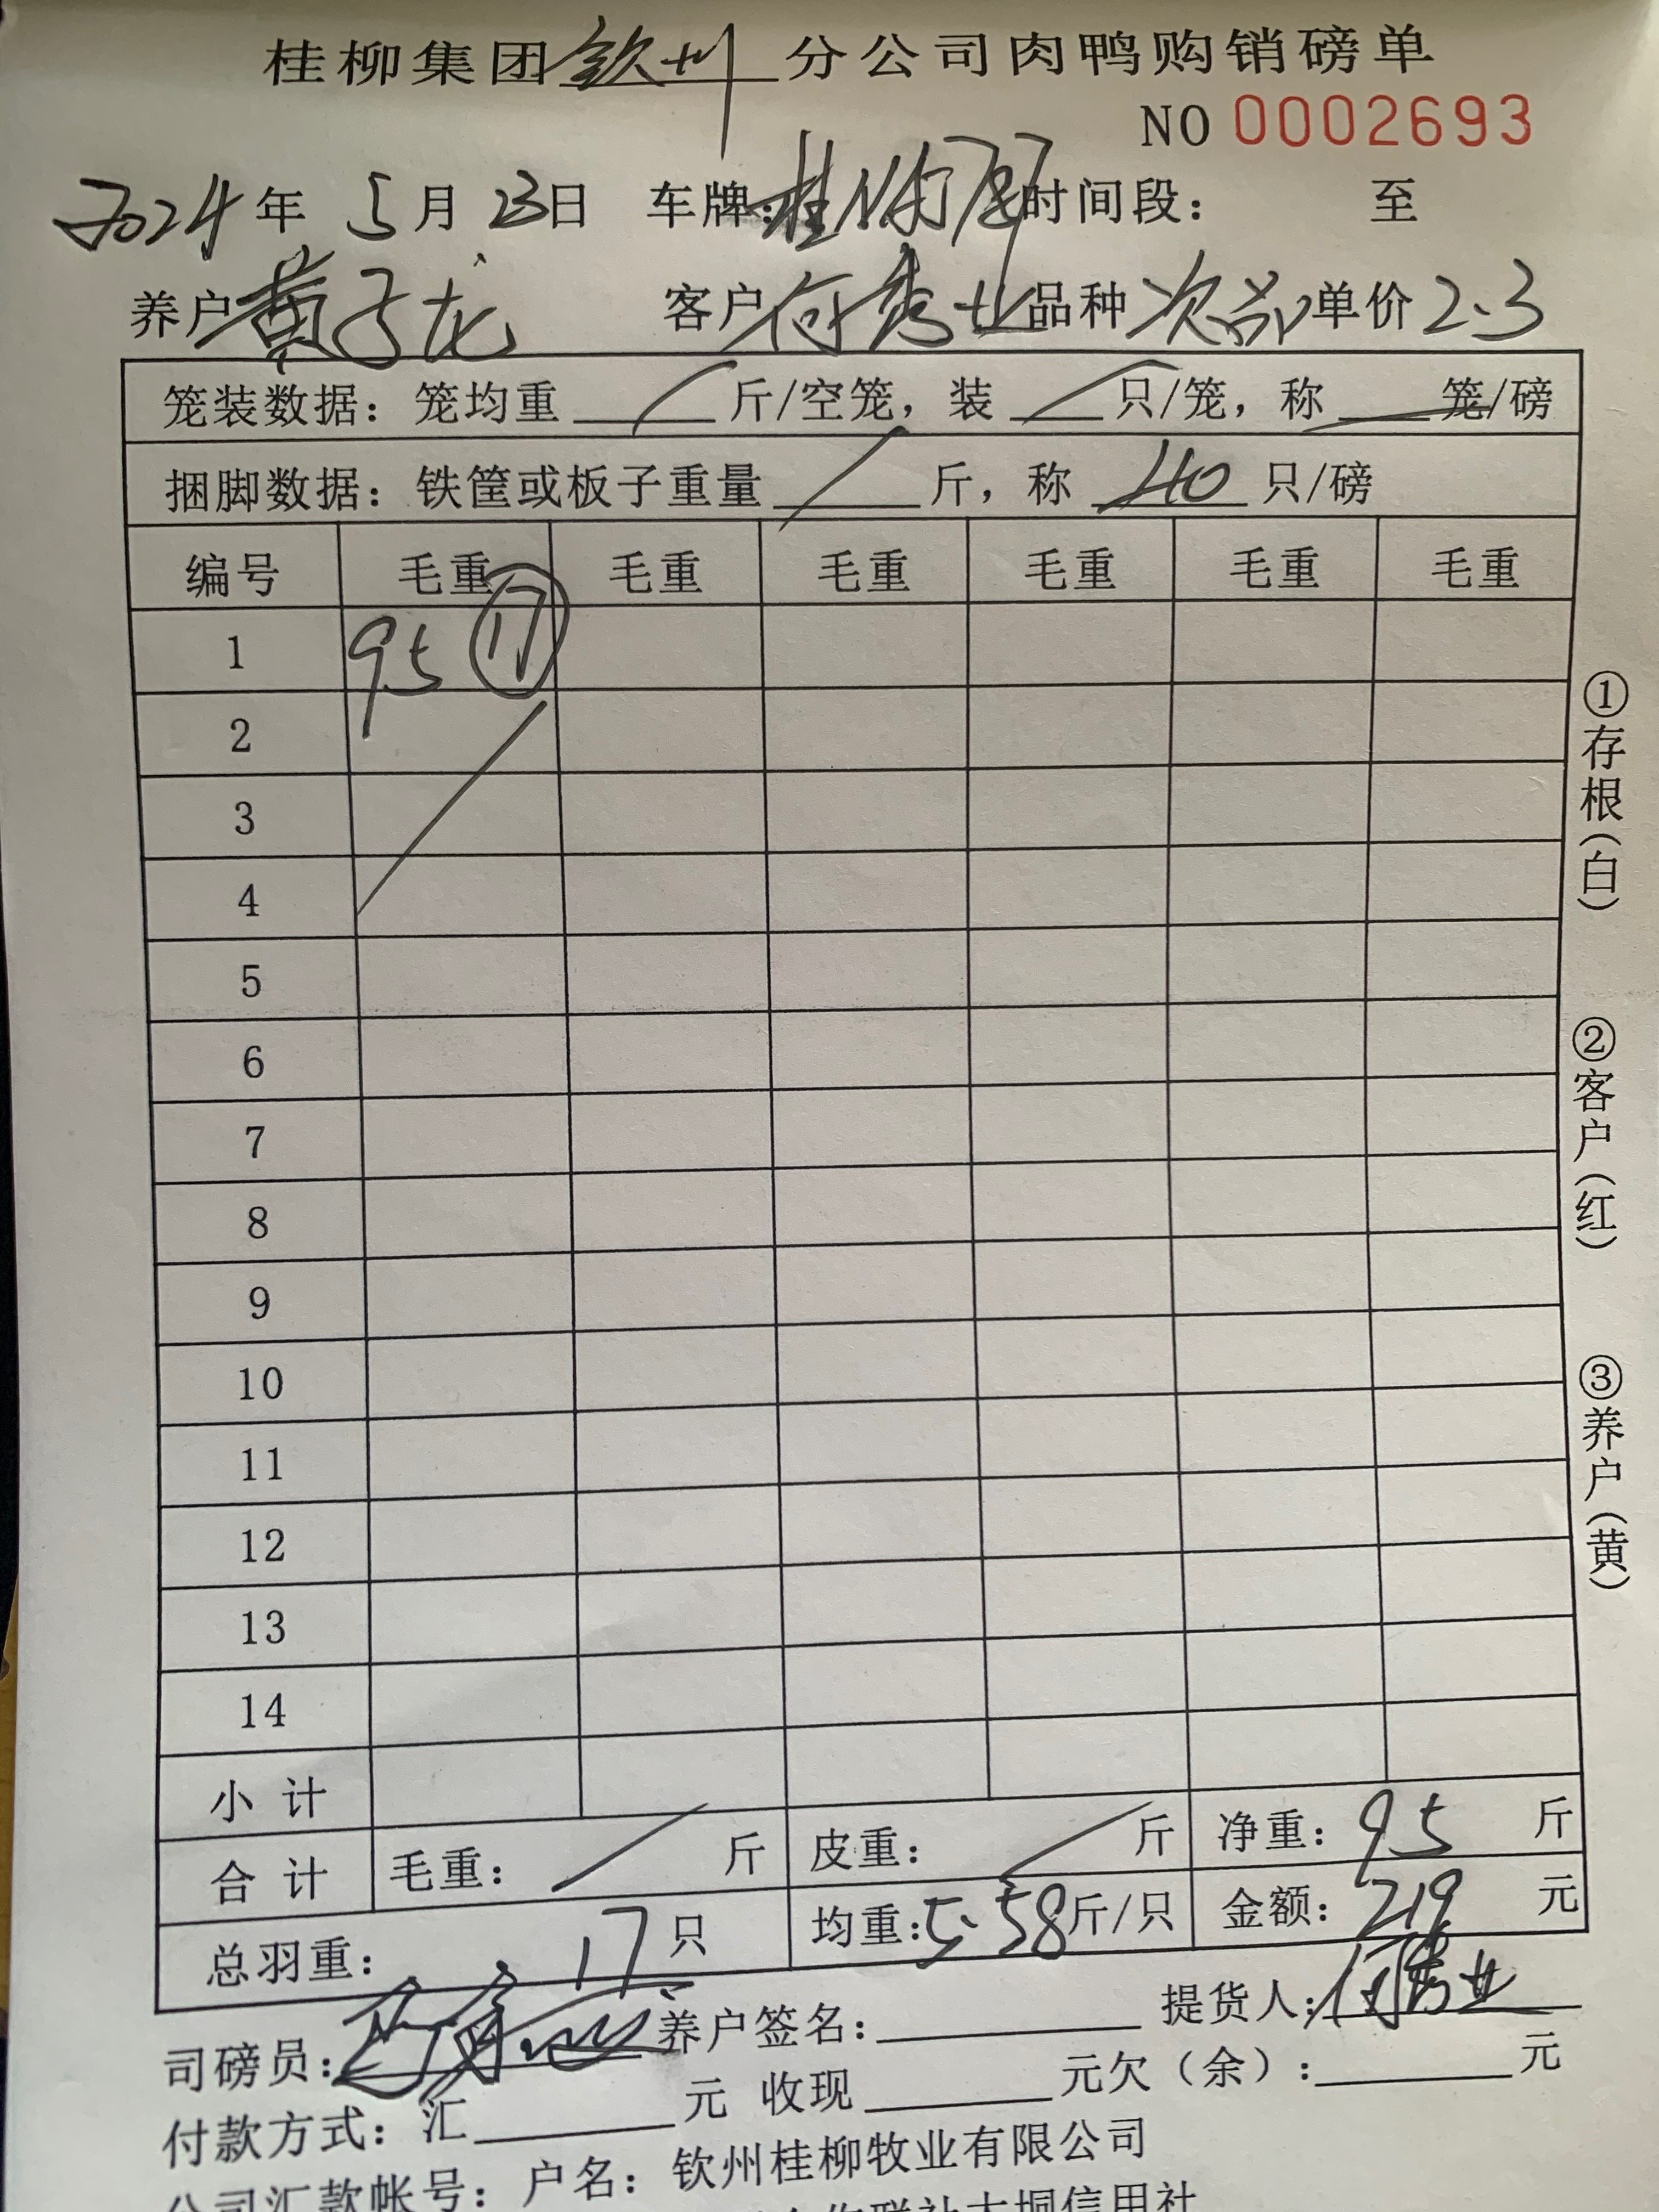 桂柳集团钦州分公司肉鸭购销磅单
NO 0002693
2024年 5月 23日 车牌: 桂 时间段: 至
养户 黄子龙 客户 何秀业 品种 次 单价 2.3
笼装数据: 笼均重 斤/空笼, 装 只/笼, 称 笼/磅
捆脚数据: 铁筐或板子重量 斤, 称 40 只/磅
编号 毛重 毛重 毛重 毛重 毛重 毛重
1 95 ⑰
2
3
4
5
6
7
8
9
10
11
12
13
14
小计
合计 毛重: 斤 皮重: 斤 净重: 95 斤
总羽重: 17 只 均重: 5.58 斤/只 金额: 219 元
司磅员: 养户签名: 提货人: 何秀业
付款方式: 汇 元 收现 元欠(余): 元
公司汇款帐号: 户名: 钦州桂柳牧业有限公司
大垌信用社
①存根(白)
②客户(红)
③养户(黄)